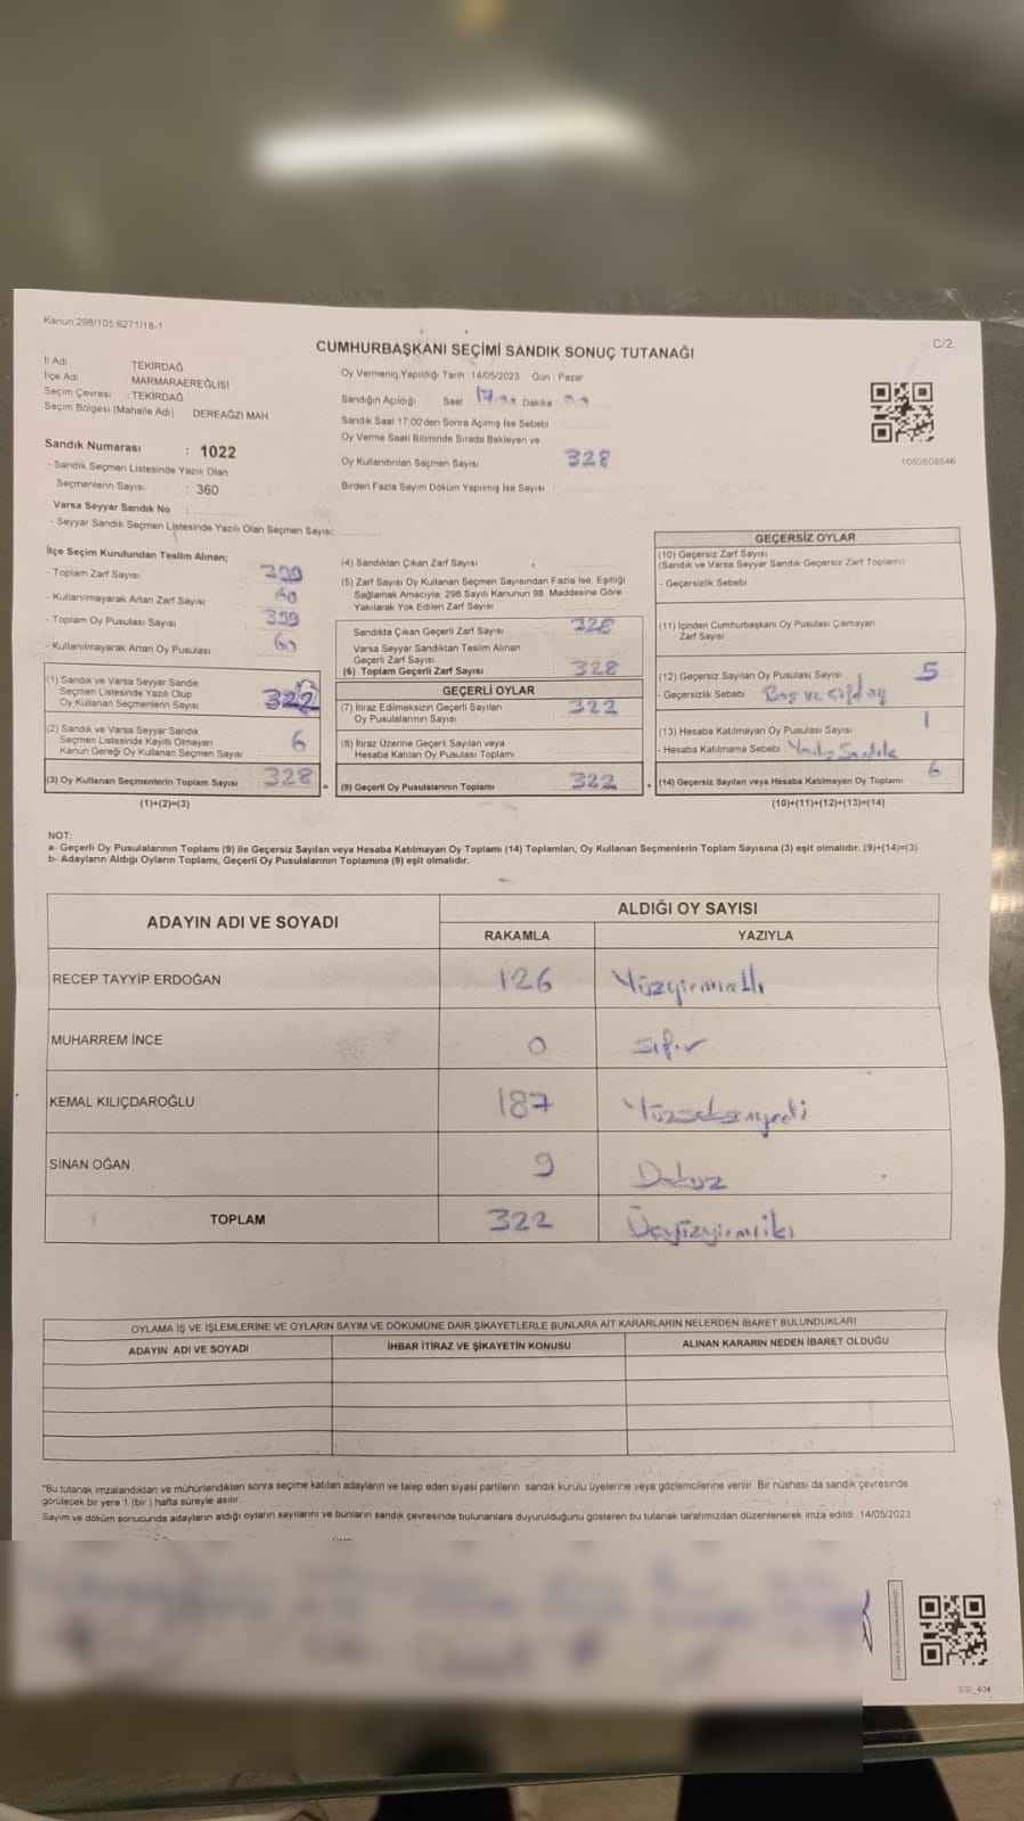 Kanun:298/105,6271/18-1
C/2
CUMHURBAŞKANI SEÇİMİ SANDIK SONUÇ TUTANAĞI
İl Adı TEKİRDAĞ
İlçe Adı MARMARAEREĞLİSİ
Seçim Çevresi : TEKİRDAĞ
Seçim Bölgesi (Mahalle Adı) DEREAĞZI MAH
Sandık Numarası : 1022
- Sandık Seçmen Listesinde Yazılı Olan
Seçmenlerin Sayısı : 360
Varsa Seyyar Sandık No
- Seyyar Sandık Seçmen Listesinde Yazılı Olan Seçmen Sayısı:
Oy Vermenin Yapıldığı Tarih :14/05/2023 Gün : Pazar
Sandığın Açıldığı Saat 17 Dakika
Sandık Saat 17:00'den Sonra Açılmış İse Sebebi
Oy Verme Saati Bitiminde Sırada Bekleyen ve
Oy Kullandırılan Seçmen Sayısı 328
Birden Fazla Sayım Döküm Yapılmış İse Sayısı
İlçe Seçim Kurulundan Teslim Alınan;
- Toplam Zarf Sayısı
- Kullanılmayarak Artan Zarf Sayısı
- Toplam Oy Pusulası Sayısı
- Kullanılmayarak Artan Oy Pusulası
(1) Sandık ve Varsa Seyyar Sandık
Seçmen Listesinde Yazılı Olup
Oy Kullanan Seçmenlerin Sayısı 322
(2) Sandık ve Varsa Seyyar Sandık
Seçmen Listesinde Kayıtlı Olmayan
Kanun Gereği Oy Kullanan Seçmen Sayısı 6
(3) Oy Kullanan Seçmenlerin Toplam Sayısı 328
(1)+(2)=(3)
(4) Sandıktan Çıkan Zarf Sayısı
(5) Zarf Sayısı Oy Kullanan Seçmen Sayısından Fazla İse, Eşitliği
Sağlamak Amacıyla; 298 Sayılı Kanunun 98. Maddesine Göre
Yakılarak Yok Edilen Zarf Sayısı
Sandıkta Çıkan Geçerli Zarf Sayısı 328
Varsa Seyyar Sandıktan Teslim Alınan
Geçerli Zarf Sayısı
(6) Toplam Geçerli Zarf Sayısı 328
GEÇERLİ OYLAR
(7) İtiraz Edilmeksizin Geçerli Sayılan
Oy Pusulalarının Sayısı 322
(8) İtiraz Üzerine Geçerli Sayılan veya
Hesaba Katılan Oy Pusulaları Toplamı
(9) Geçerli Oy Pusulalarının Toplamı 322
GEÇERSİZ OYLAR
(10) Geçersiz Zarf Sayısı
(Sandık ve Varsa Seyyar Sandık Geçersiz Zarf Toplamı)
- Geçersizlik Sebebi
(11) İçinden Cumhurbaşkanı Oy Pusulası Çıkmayan
Zarf Sayısı
(12) Geçersiz Sayılan Oy Pusulası Sayısı 5
- Geçersizlik Sebebi Boş ve Çift oy
(13) Hesaba Katılmayan Oy Pusulası Sayısı 1
- Hesaba Katılmama Sebebi
(14) Geçersiz Sayılan veya Hesaba Katılmayan Oy Toplamı 6
(10)+(11)+(12)+(13)=(14)
NOT:
a- Geçerli Oy Pusulalarının Toplamı (9) ile Geçersiz Sayılan veya Hesaba Katılmayan Oy Toplamı (14) Toplamları, Oy Kullanan Seçmenlerin Toplam Sayısına (3) eşit olmalıdır. (9)+(14)=(3)
b- Adayların Aldığı Oyların Toplamı, Geçerli Oy Pusulalarının Toplamına (9) eşit olmalıdır.
ADAYIN ADI VE SOYADI ALDIĞI OY SAYISI
RAKAMLA YAZIYLA
RECEP TAYYİP ERDOĞAN 126 Yüzyirmialtı
MUHARREM İNCE 0 Sıfır
KEMAL KILIÇDAROĞLU 187 Yüzseksenyedi
SİNAN OĞAN 9 Dokuz
TOPLAM 322 Üçyüzyirmiiki
OYLAMA İŞ VE İŞLEMLERİNE VE OYLARIN SAYIM VE DÖKÜMÜNE DAİR ŞİKAYETLERLE BUNLARA AİT KARARLARIN NELERDEN İBARET BULUNDUKLARI
ADAYIN ADI VE SOYADI İHBAR İTİRAZ VE ŞİKAYETİN KONUSU ALINAN KARARIN NEDEN İBARET OLDUĞU
*Bu tutanak imzalandıktan ve mühürlendikten sonra seçime katılan adayların ve talep eden siyasi partilerin sandık kurulu üyelerine veya gözlemcilerine verilir. Bir nüshası da sandık çevresinde
görülecek bir yere 1 (bir ) hafta süreyle asılır.
Sayım ve döküm sonucunda adayların aldığı oyların sayılarını ve bunların sandık çevresinde bulunanlara duyurulduğunu gösteren bu tutanak tarafımızdan düzenlenerek imza edildi. 14/05/2023